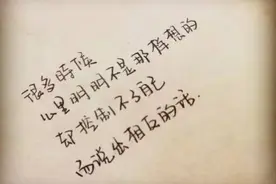 很多時候
心里明明不是那样想的
却控制不了自己
而说出相反的话.